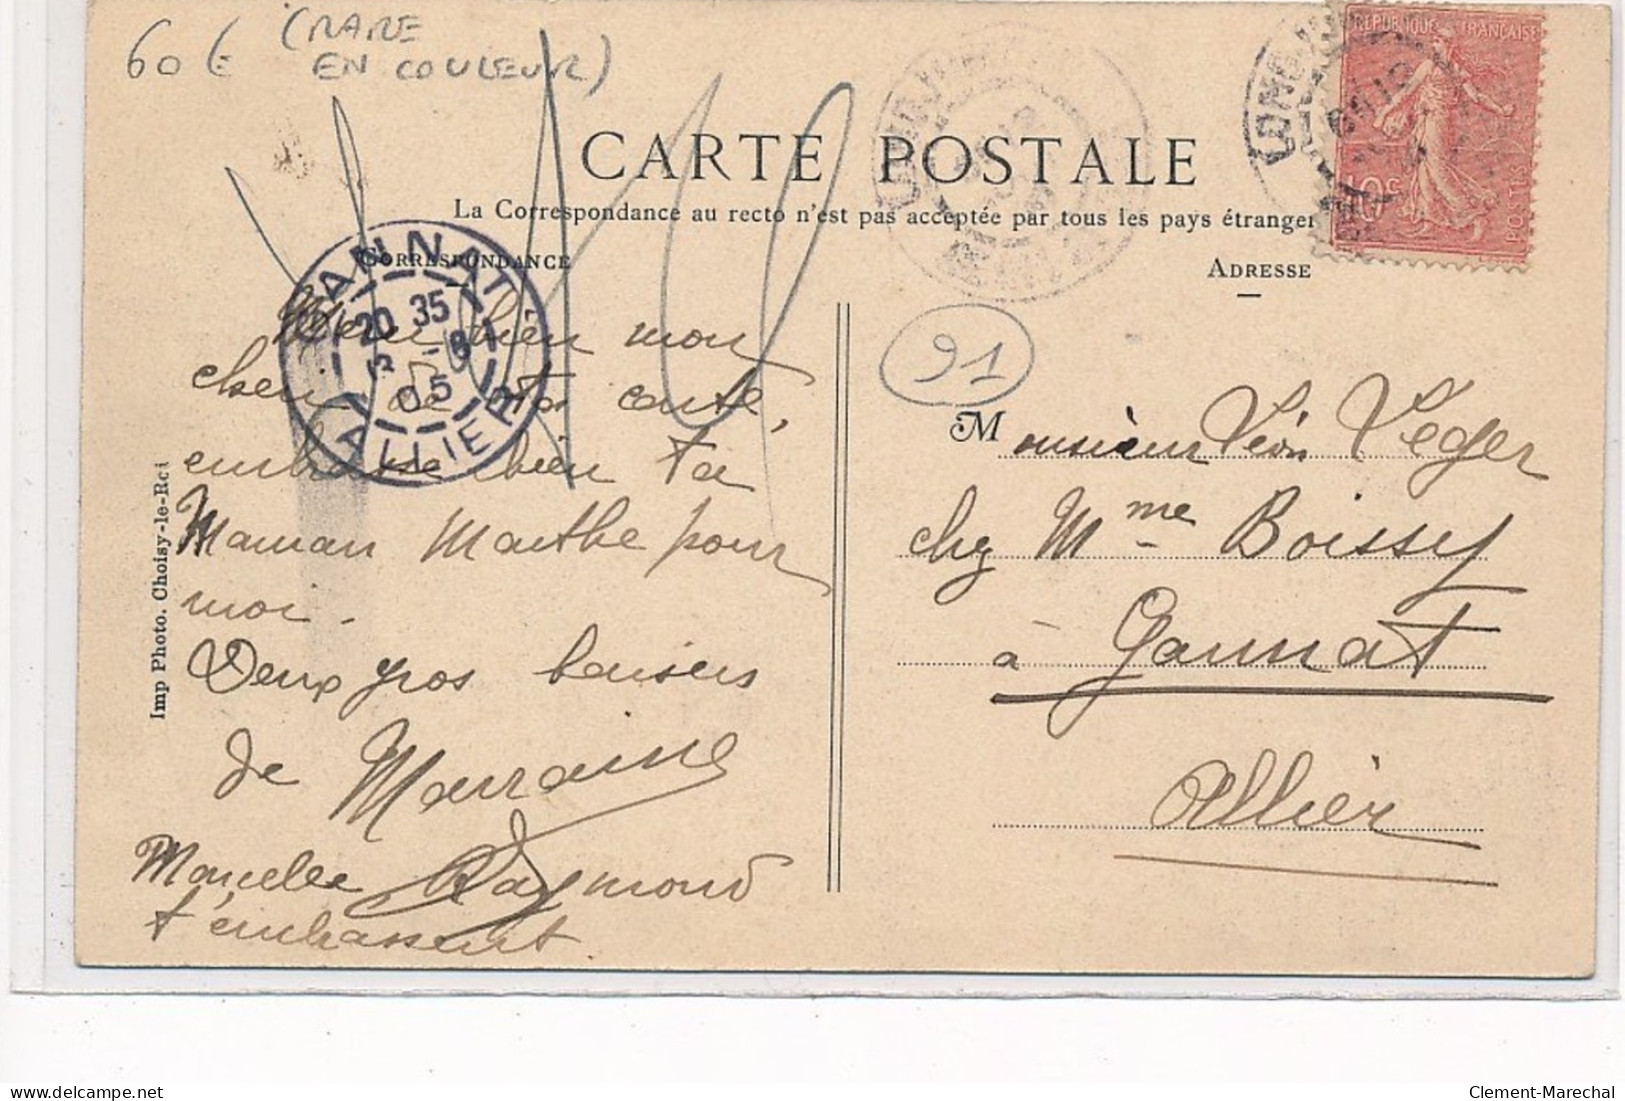 60€ (RARE
EN COULEUR)
RÉPUBLIQUE FRANÇAISE
10c
POSTES
CARTE POSTALE
La Correspondance au recto n'est pas acceptée par tous les pays étranger
CORRESPONDANCE
ADRESSE
GANNAT
20 35
3 -8
05
ALLIER
91
Merci bien mon
cher de ta carte,
embrasse bien ta
Maman Marthe pour
moi.
Deux gros baisers
de Marraine
Marcelle Raymond
t'embrassent
M onsieur Léon Leger
chez Mme Boissy
à Gannat
Allier
Imp Photo. Choisy-le-Rci
delcampe.net
Clement-Marechal